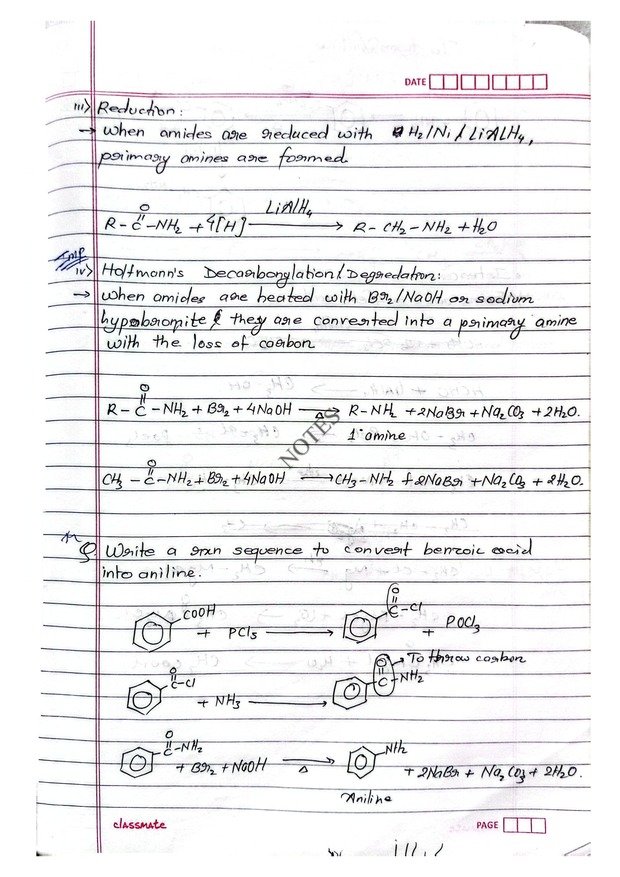 DATE
iii) Reduction:
→ When amides are reduced with H2/Ni / LiAlH4,
primary amines are formed.
O
R-C-NH2 + 4[H] LiAlH4 → R-CH2-NH2 + H2O
Imp
iv) Hoffmann's Decarbonylation/Degredation:
→ When amides are heated with Br2/NaOH or sodium
hypobromite & they are converted into a primary amine
with the loss of carbon
O
R-C-NH2 + Br2 + 4NaOH →Δ R-NH2 + 2NaBr + Na2CO3 + 2H2O.
1° amine
NOTES
O
CH3-C-NH2 + Br2 + 4NaOH → CH3-NH2 + 2NaBr + Na2CO3 + 2H2O.
Q. Write a rxn sequence to convert benzoic acid
into aniline.
COOH + PCl5 → O C-Cl + POCl3
→ To throw carbon
O C-Cl + NH3 → O C-NH2
O C-NH2 + Br2 + NaOH →Δ NH2 + 2NaBr + Na2CO3 + 2H2O.
Aniline
classmate PAGE